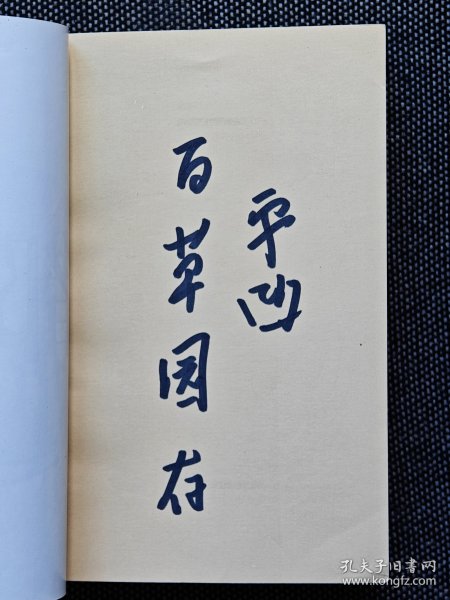 平凹
百草园存
孔夫子旧书网
www.kongfz.com